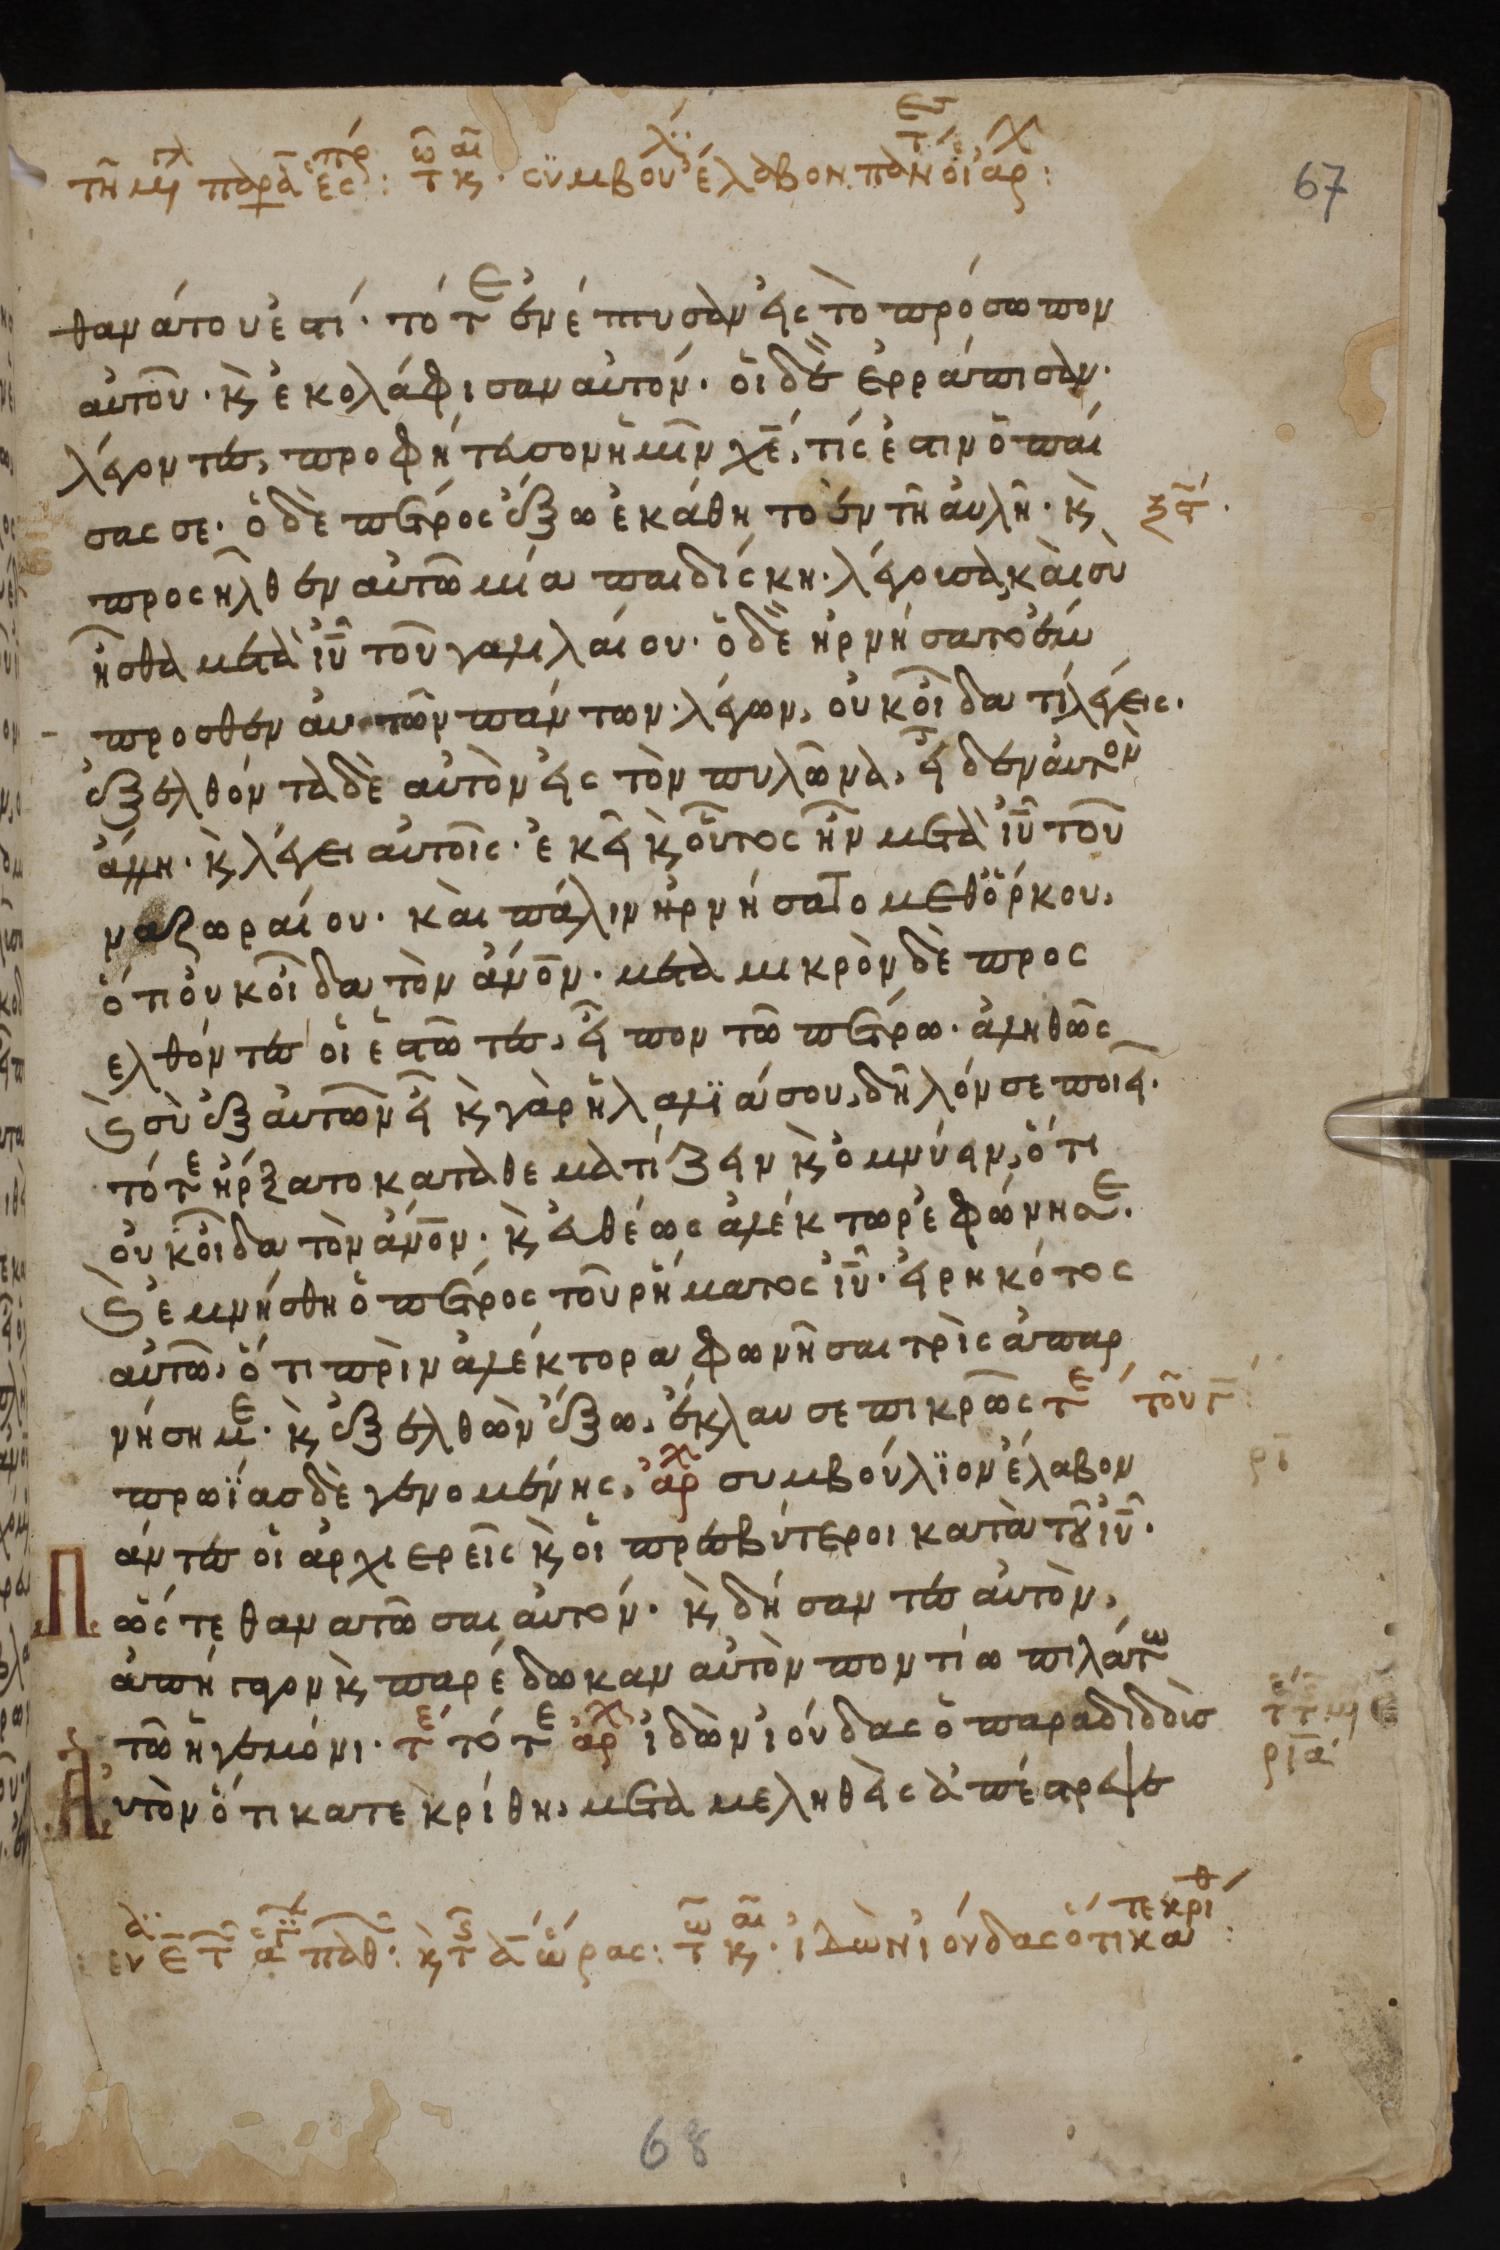 67
θανάτου ἐστί· τότε ἐνέπτυσαν εἰς τὸ πρόσωπον
αὐτοῦ· κ ἐκολάφισαν αὐτόν· οἱ δὲ ἐρράπισαν·
λέγοντες, προφήτευσον ἡμῖν χε, τίς ἐστιν ὁ παί
σας σε· ὁ δὲ πέτρος ἔξω ἐκάθητο ἐν τῆ αὐλῆ· κ
προσῆλθεν αὐτῶ μία παιδίσκη· λέγουσα, καὶ σὺ
ἦσθα μετὰ ιυ τοῦ γαλιλαίου· ὁ δὲ ἠρνήσατο ἔμ
προσθεν αυτῶν πάντων· λέγων, οὐκ οἶδα τί λέγεις·
ἐξελθόντα δὲ αὐτὸν εἰς τὸν πυλῶνα, εἶδεν αὐτὸν
ἄλλη· κ λέγει αὐτοῖς· ἐκεῖ κ οὗτος ἦν μετὰ ιυ τοῦ
ναζωραίου· καὶ πάλιν ἠρνήσατο μεθ ὅρκου,
ὅτι οὐκ οἶδα τὸν ανον· μετὰ μικρὸν δὲ προς
ελθόντες οἱ ἑστῶτες, εἶπον τῶ πέτρω· ἀληθῶς
κ σὺ ἐξ αὐτῶν εἶ κ γὰρ ἡ λαλϊά σου, δῆλόν σε ποιεῖ·
τότε ἤρξατο καταθεματίζειν κ ὀμνύειν, ὅτι
οὐκ οἶδα τὸν ανον· κ εὐθέως ἀλέκτωρ ἐφώνησε.
κ ἐμνήσθη ὁ πέτρος τοῦ ῥήματος ιυ· εἰρηκότος
αὐτῶ, ὅτι πρὶν ἀλέκτορα φωνῆσαι τρὶς ἀπαρ
νήση με· κ ἐξελθὼν ἔξω, ἔκλαυσε πικρῶς τε τοῦ γ
πρωΐας δὲ γενομένης, αρχ συμβούλϊον ἔλαβον
πάντες οἱ ἀρχιερεῖς κ οἱ πρεσβύτεροι κατὰ τοῦ ιυ·
ὥστε θανατῶσαι αὐτόν· κ δήσαντες αὐτὸν,
ἀπήγαγον κ παρέδωκαν αὐτὸν ποντίω πιλάτω
τῶ ἡγεμόνι· τε τότε αρχ ἰδὼν ἰούδας ὁ παραδιδοὺς
αὐτὸν ὅτι κατεκρίθη, μεταμεληθεὶς ἀπέστρεψε
68